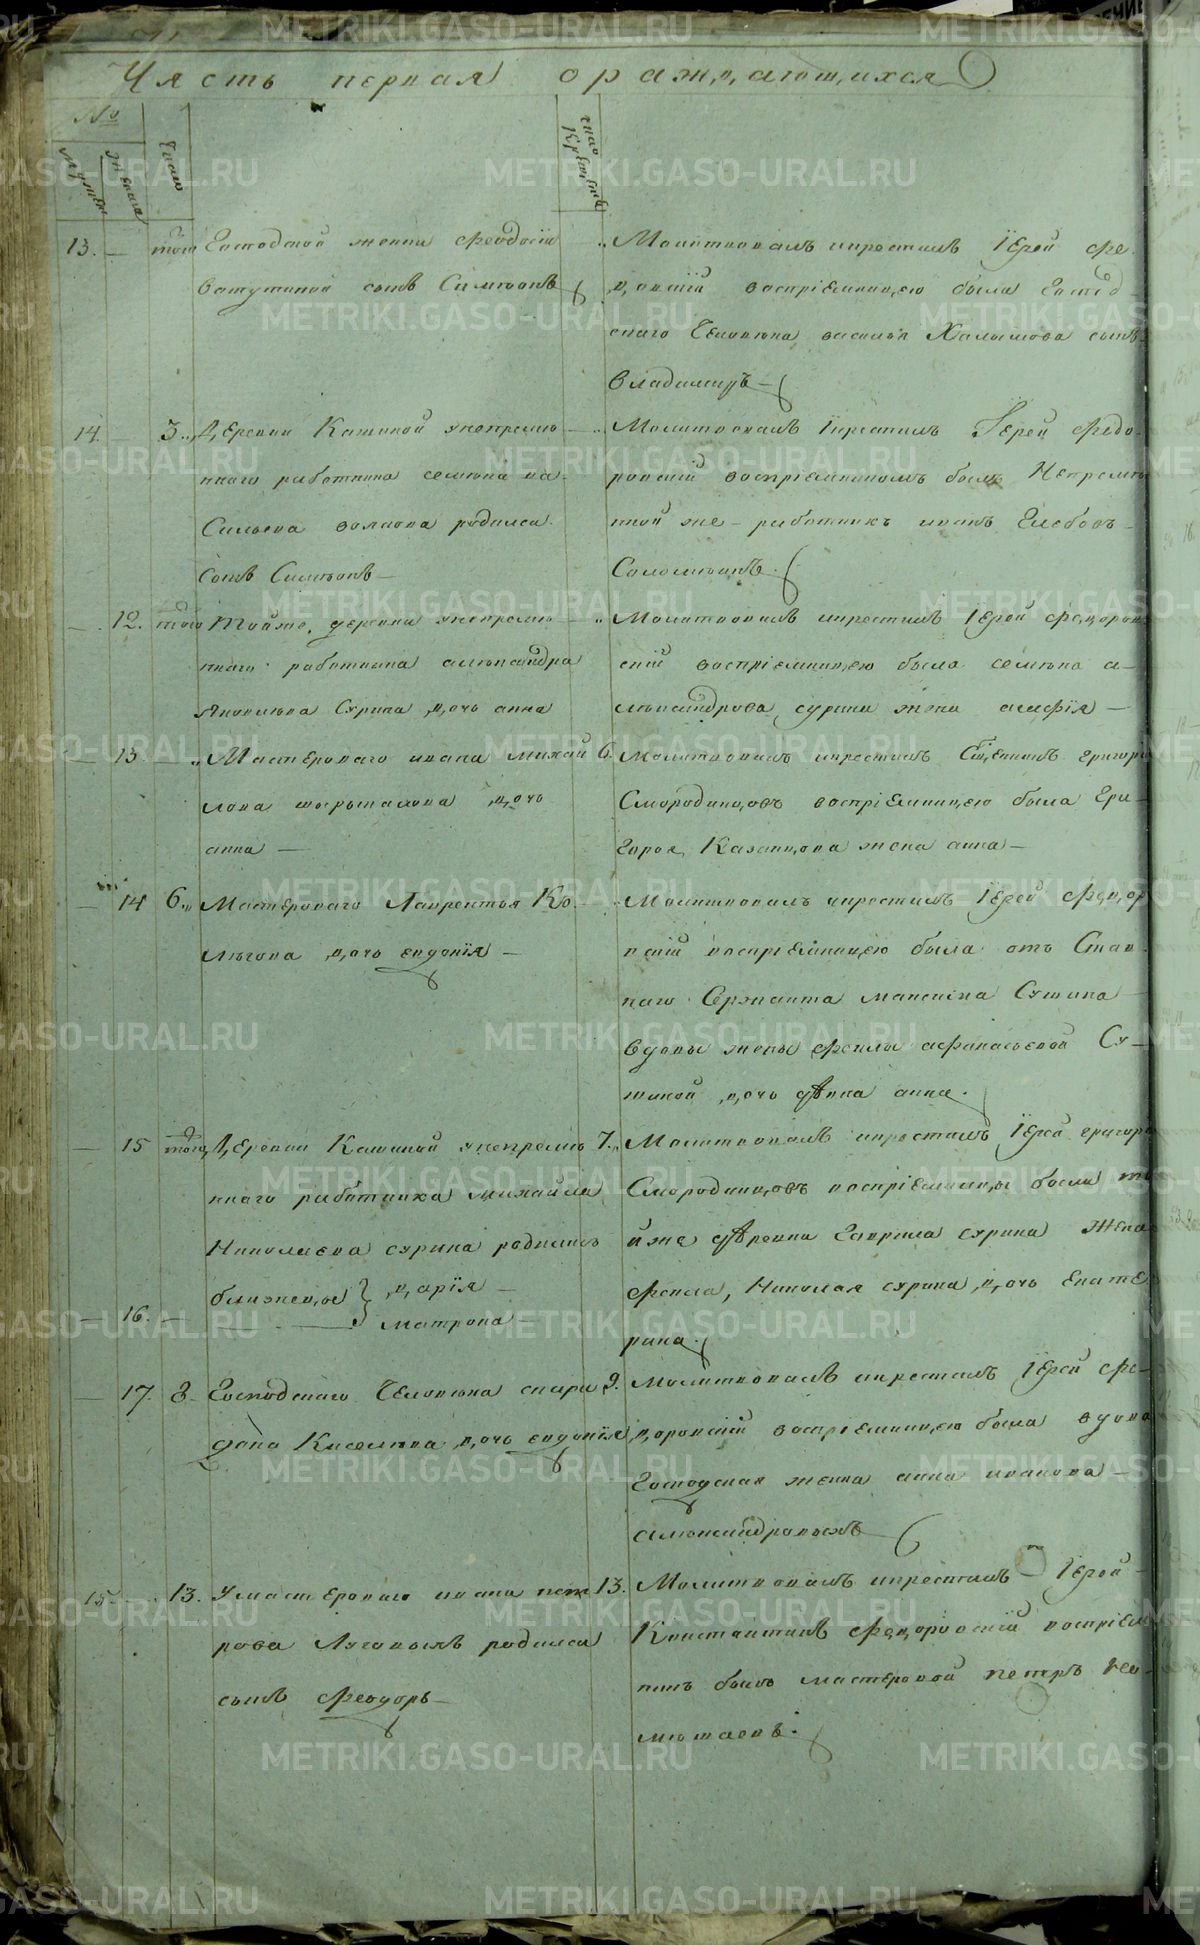 Часть первая ораждающихся
№
мужеск
женска
Число
число
Крещенія
13. того Господской женки Феодосіи
Ватутиной сынъ Симеонъ
Молитвовалъ икрестилъ Іерей Фе
доровскій воспріемницею была Господ
скаго Человека василья Халымова сынъ
владимиръ
14. 3. Деревни Кашиной унепреме
ннаго работника семена ва
Сильева волкова родился
сынъ Симеонъ
Молитвовалъ Iкрестилъ Іерей Федо
ровскій воспріемникомъ былъ Непреме
нной же работникъ иванъ Глебовъ
Соломеинъ.
12. того Тойже деревни унепреме
ннаго работника александра
Яковлева Сурина дочь анна
Молитвовалъ икрестилъ Іерей Федоров
скій воспріемницею была семена а
лександрова сурина жена агафія
13. Мастероваго ивана михай
лова дочь
анна
6. Молитвовалъ икрестилъ Священникъ григори
Смородинцовъ воспріемницею была Гри
горья Казанцова жена анна
14 6. Мастероваго Лаврентья Ко
легова дочь евдокія
Молитвовалъ икрестилъ Іерей Федор
вскій воспріемницею была отъ Став
наго Сержанта максима Сушина
вдовы жены Феклы афанасьевой Су
шиной дочь девка анна.
15 того Деревни Кашиной унепреме
ннаго работника михайла
Николаева сурина родились
близнецы дарія
16. матрона
7. Молитвовалъ икрестилъ Іерей григори
Смородинцовъ воспріемницы были то
йже деревни Гаврила сурина Жена
Фекла, Николая сурина дочь Екате
рина.
17. 8. Господскаго Человека спири
дона Киселева дочь евдокія
9. Молитвовалъ икрестилъ Іерей Фе
доровскій воспріемницею была вдова
Господская женка анна иванова
александровыхъ
15. 13. Умастероваго ивана пет
рова Луговыхъ родился
сынъ Феодоръ
13. Молитвовалъ икрестилъ Іерей
Константинъ Федоровскій воспріем
никъ былъ мастеровой петръ